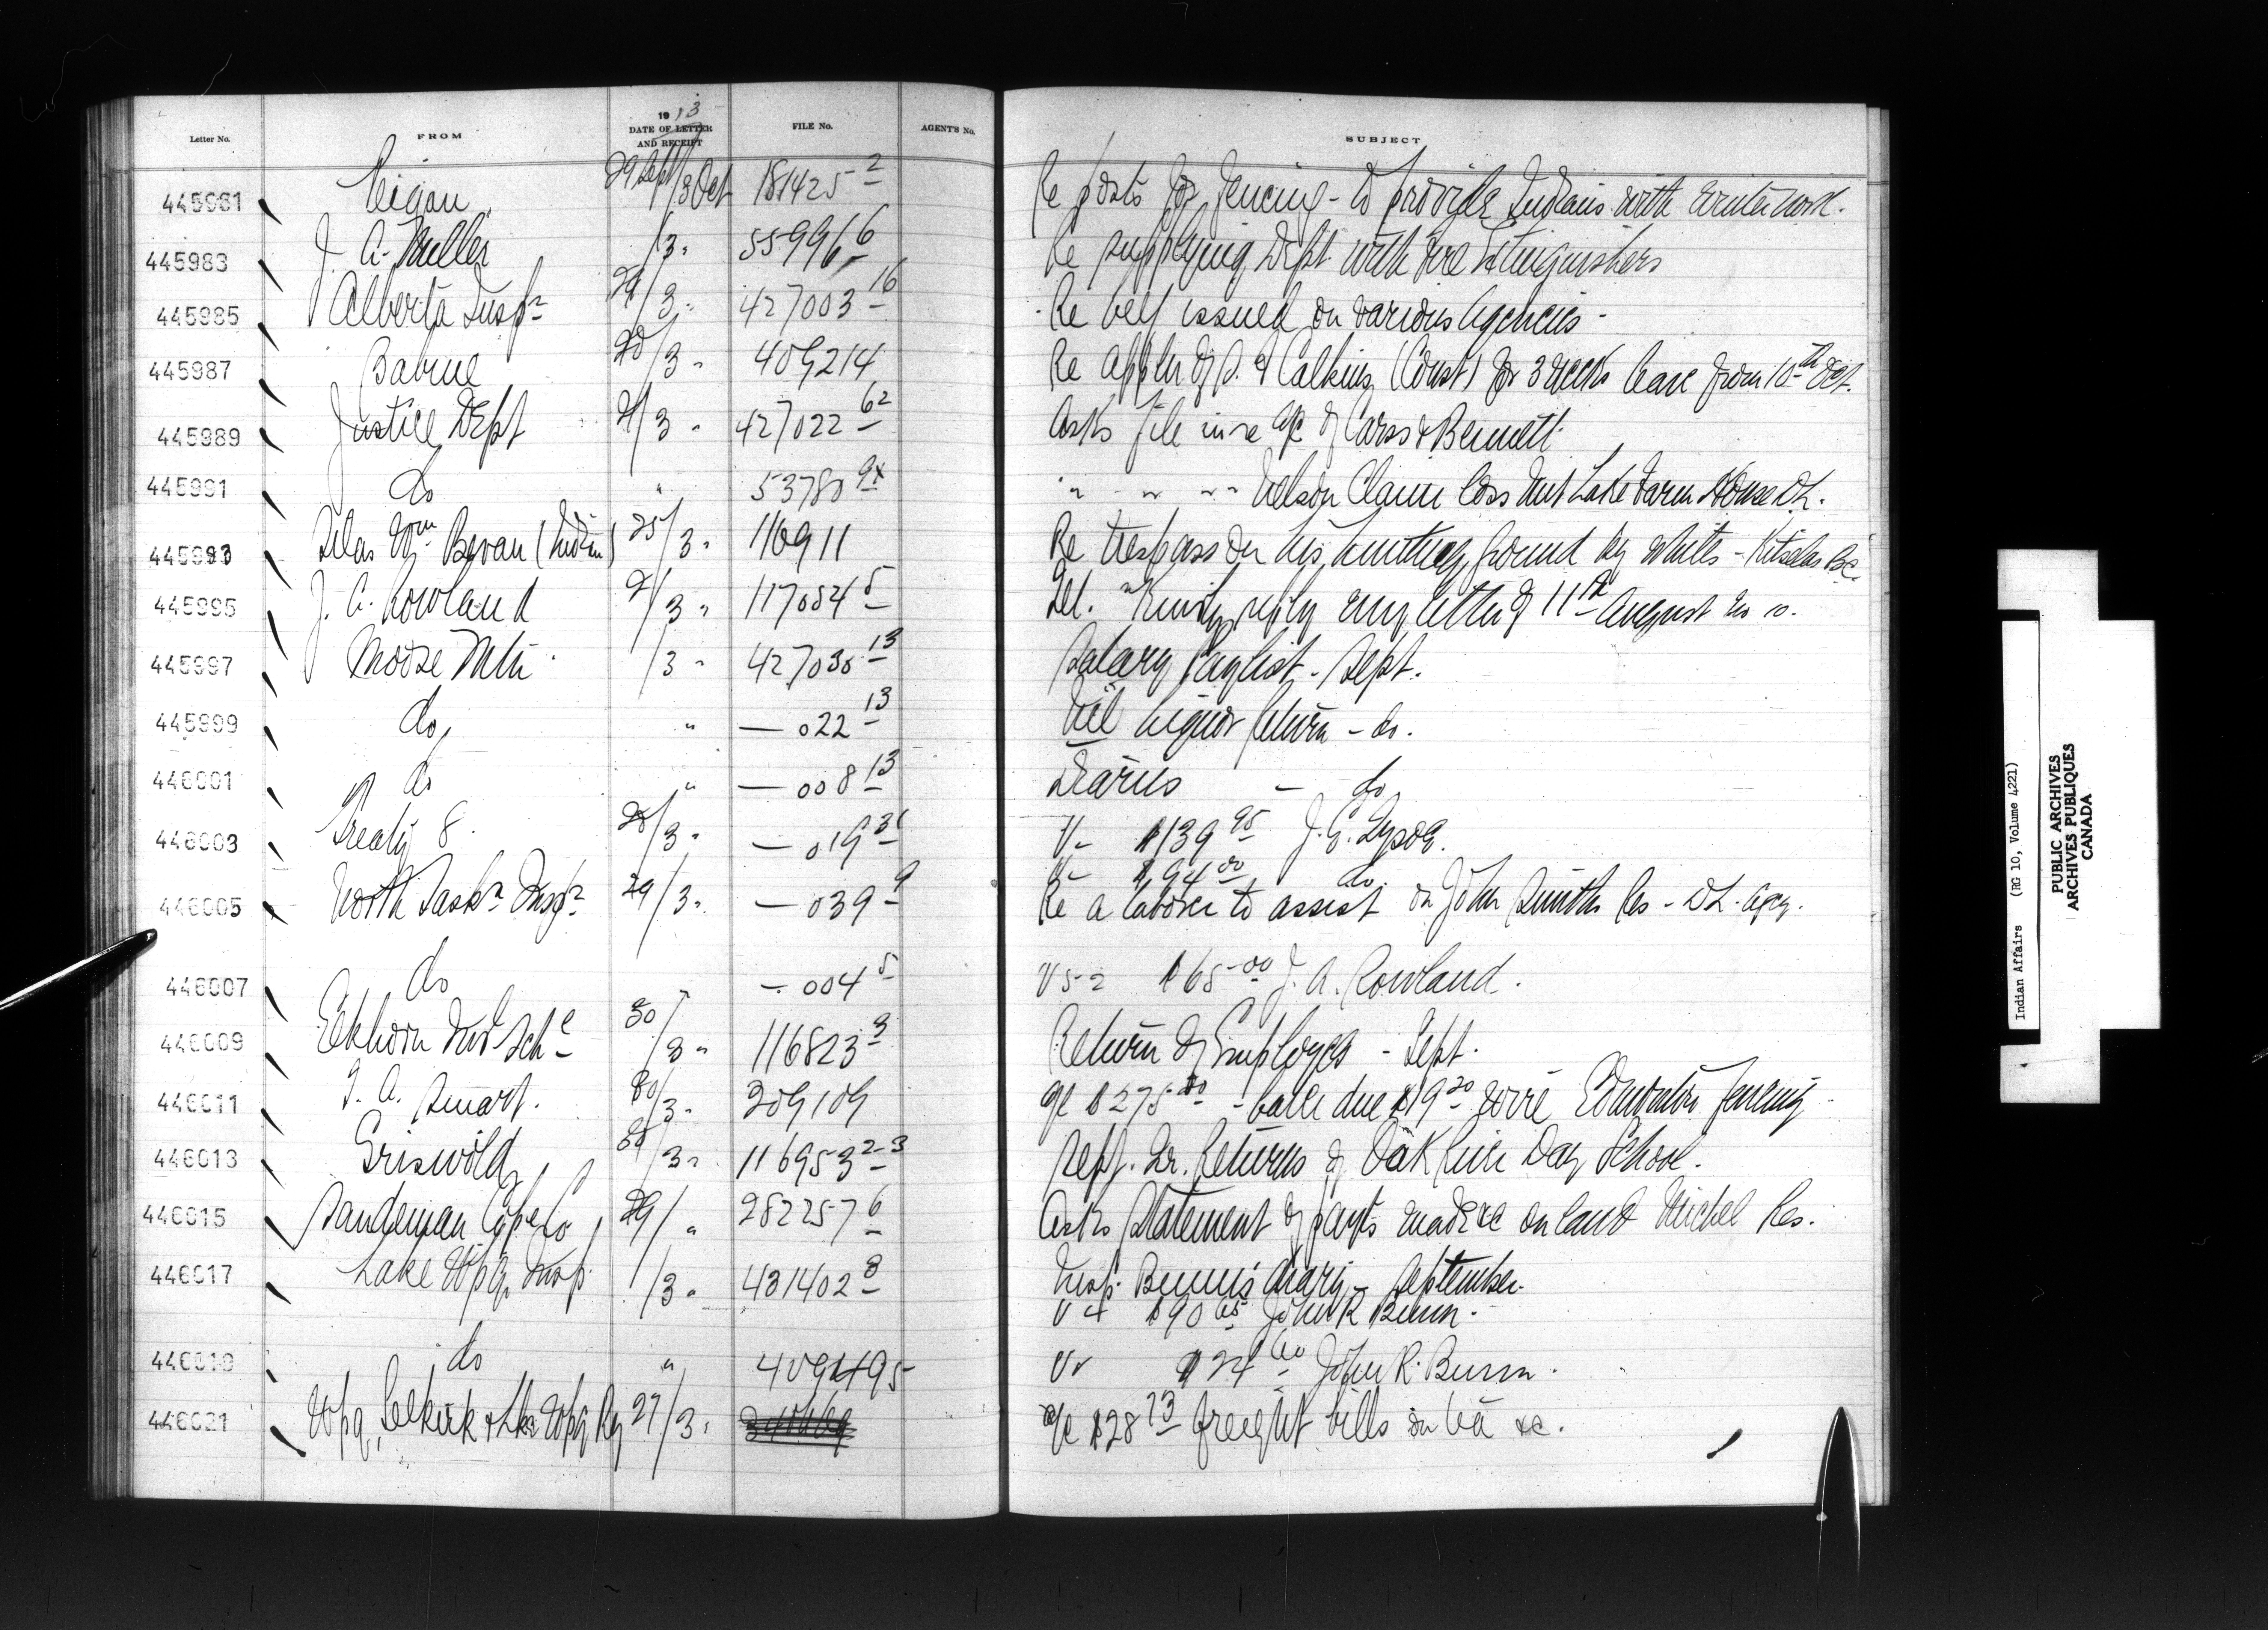 1913
Letter No. FROM DATE OF LETTER AND RECEIPT FILE No. AGENT'S No. SUBJECT
445981 29 Sept/3 Oct 181425 2 Re posts for fencing - to provide Indians with winter work.
445983 J. A. Miller /3 " 559966 Re supplying Dept. with Fire Extinguishers
445985 Alberta Insp n 29/3 " 427003 16 Re beef issued on various Agencies -
445987 Babine 20/3 " 409214 Re appln of Calkins (Const) for 3 weeks leave from 10th Oct.
445989 Justice Dept 2/3 " 427022 62 Asks file in re a/c of Carss & Bennett
445991 do " 53780 " " " Nelson Claim loss Lake Farm House D.L.
445993 Silas Wm Bevan (Indian) 25/3 " 116911 Re trespass on his hunting ground by whites - Kitselas B.C.
445995 J. A. Rowland 2/3 " 117054 5 Tel. "Kindly reply my letter of 11th August
445997 Moose Mtn /3 " 427030 13 Salary Paylist - Sept.
445999 do " — 022 13 Nil Liquor Return - do.
446001 do " — 008 13 Diaries - do
446003 Treaty 8 /3 " — 019 31 V - $139 95 J. G.
V - $94 00 do.
446005 North Sask n Insp n 29/3 " — 039 9 Re a laborer to assist on John Smith's Res - D.L. Agcy.
446007 do " — 004 5 V 52 $65 00 J. A. Rowland.
446009 Elkhorn Ind Sch l 30/3 " 116823 3 Return of Employes - Sept.
446011 J. A. Smart. 30/3 " 209109 a/c $275 00 - balce due $19 20 wire Edmonton fencing
446013 Griswold 30/3 " 116953 2-3 Sept. Qr. Returns of Oak River Day School.
446015 Sandeman Cope Co 29/ " 282257 6 Asks Statement of payts made &c on land Michel Res.
446017 Lake Wpg. Insp. 1/3 " 431402 8 Insp. Bunn's diary - September.
V 4 $90 65 John R Bunn.
446019 do " 409495 V $24 60 John R. Bunn.
446021 Wpg, Selkirk & Lke Wpg Ry 27/3 " a/c $28 73 freight bills &c.
Indian Affairs (RG 10, Volume 4221)
PUBLIC ARCHIVES
ARCHIVES PUBLIQUES
CANADA